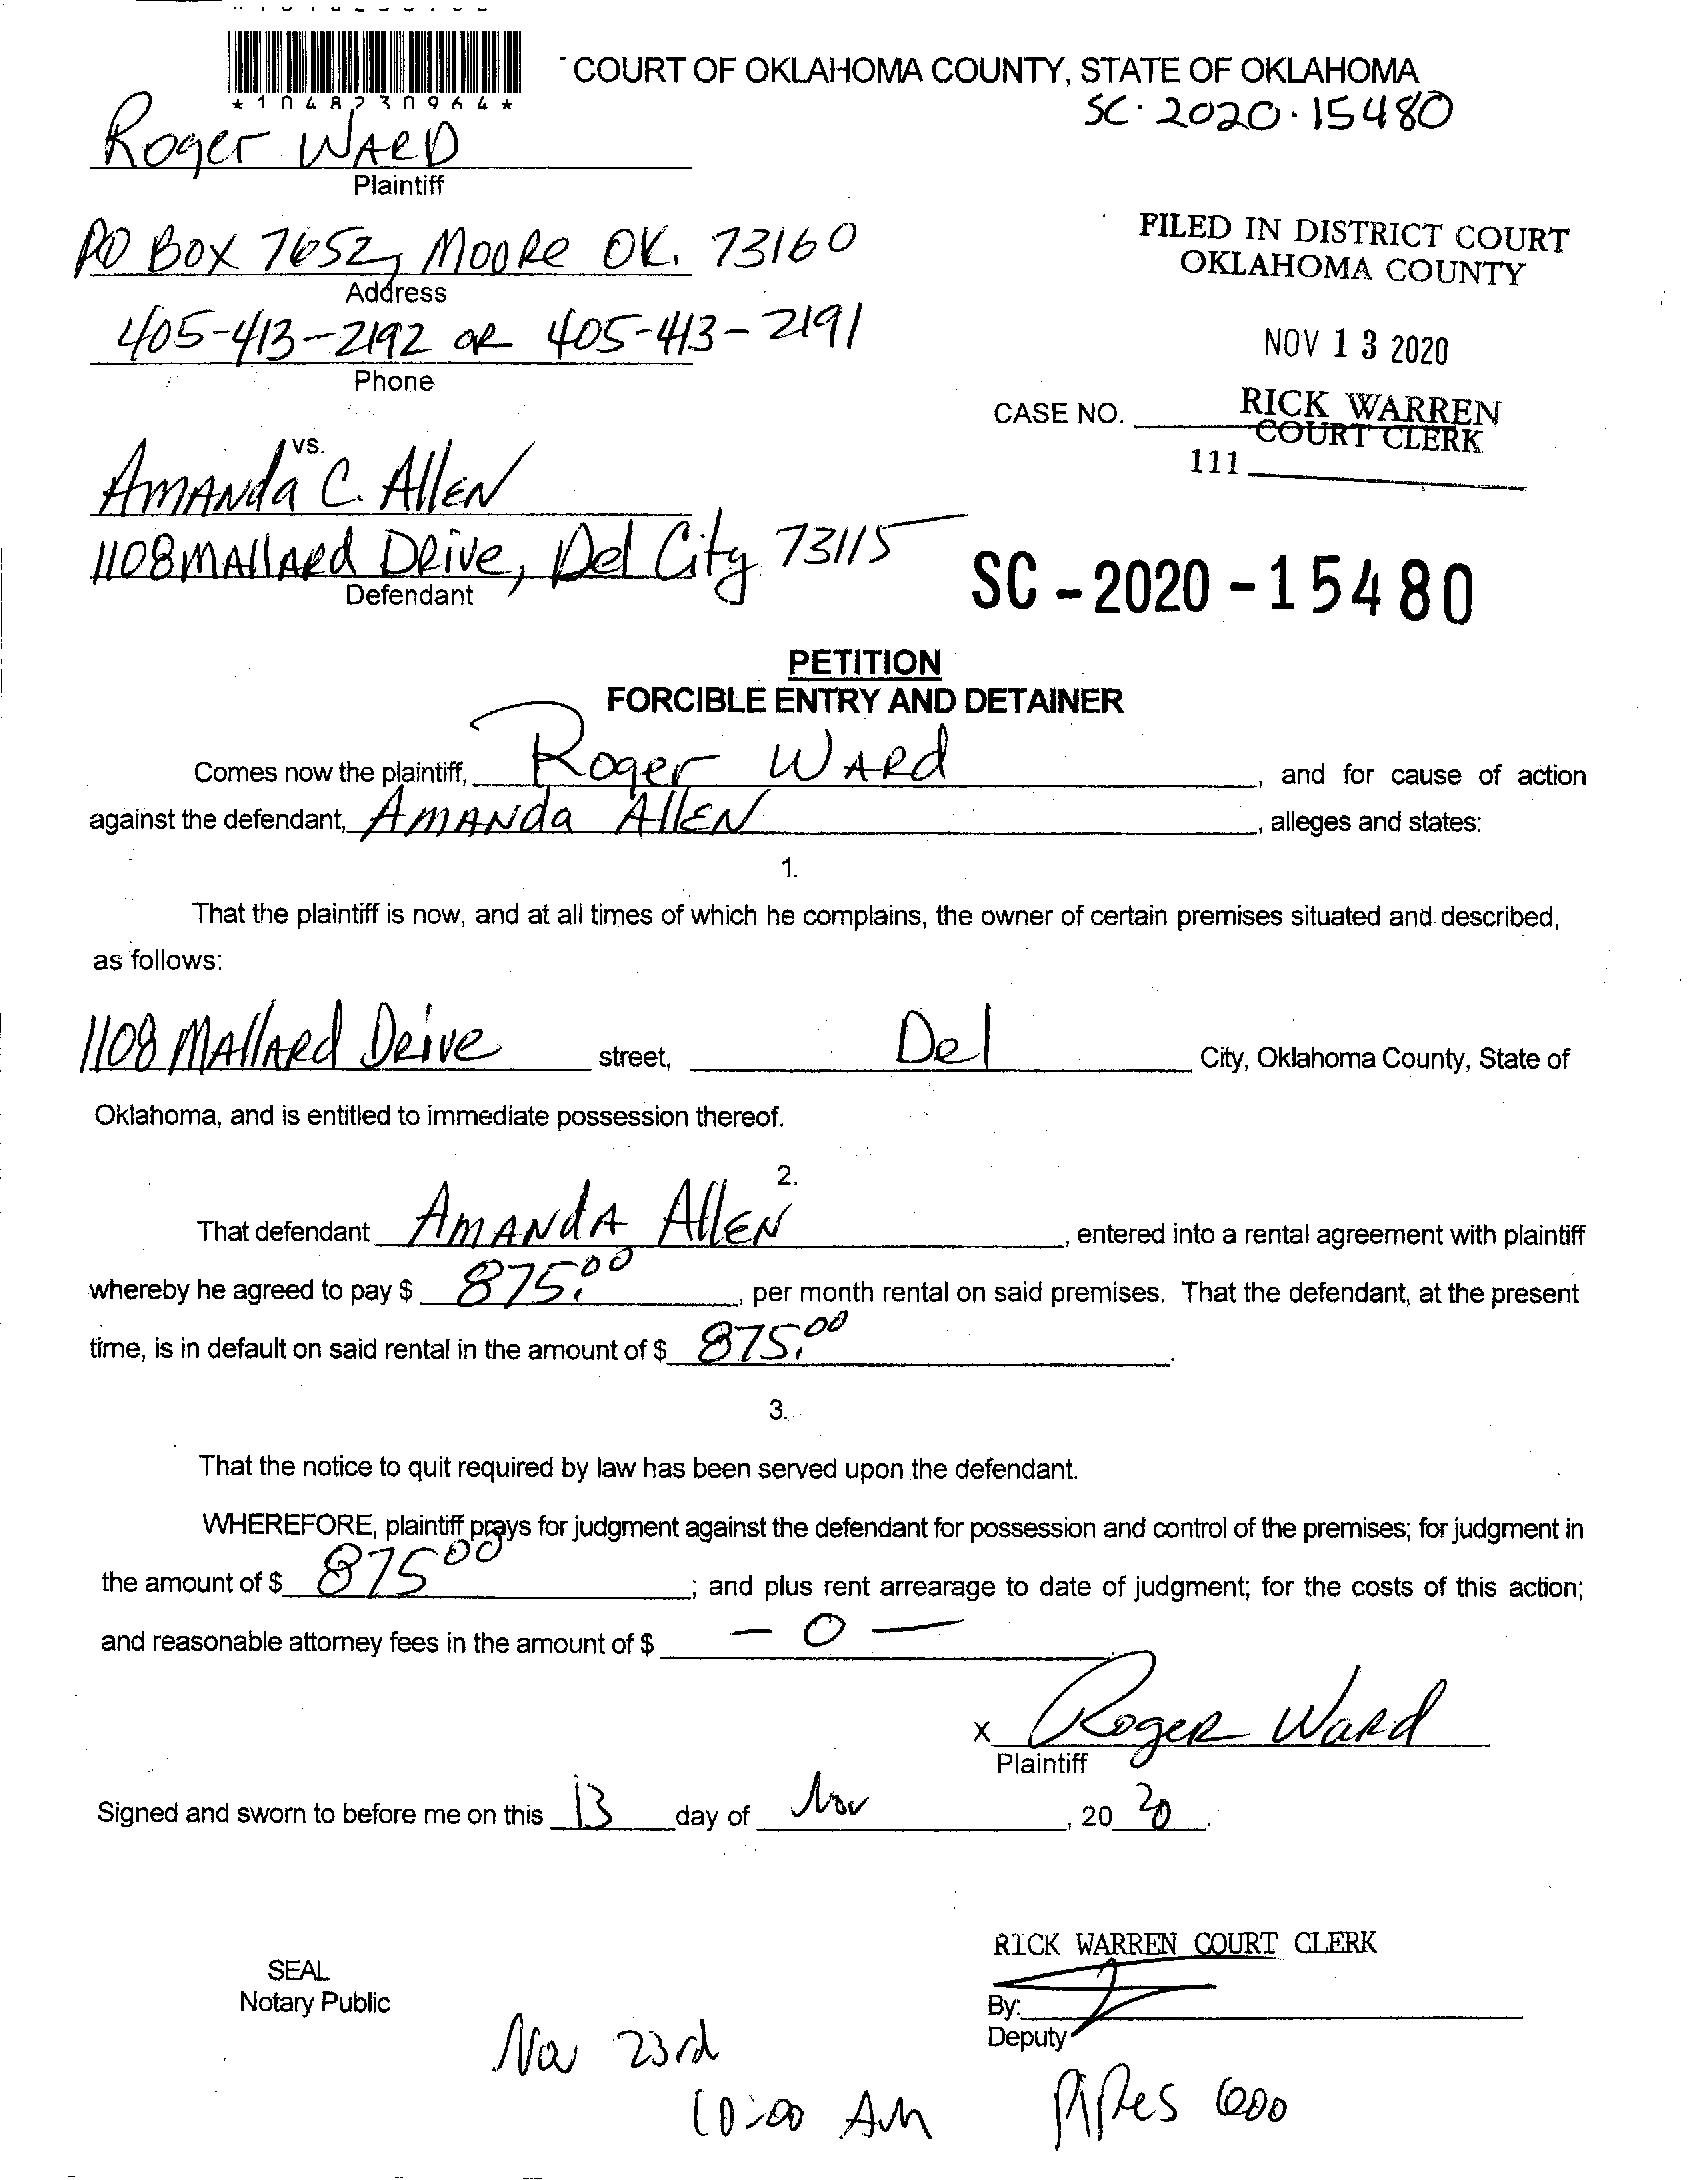 *1048230964*
COURT OF OKLAHOMA COUNTY, STATE OF OKLAHOMA
SC-2020-15480
Roger WARD
Plaintiff
PO BOX 7652, MOORe OK. 73160
Address
405-413-2192 OR 405-413-2191
Phone
FILED IN DISTRICT COURT
OKLAHOMA COUNTY
NOV 13 2020
CASE NO.
RICK WARREN
COURT CLERK
111
vs.
AMANda C. AllEN
1108 MAllARd DRive, Del City 73115
Defendant
SC-2020-15480
PETITION
FORCIBLE ENTRY AND DETAINER
Comes now the plaintiff, Roger WARd, and for cause of action
against the defendant, AMANda AllEN, alleges and states:
1.
That the plaintiff is now, and at all times of which he complains, the owner of certain premises situated and described,
as follows:
1108 MAllARd DRive street, Del City, Oklahoma County, State of
Oklahoma, and is entitled to immediate possession thereof.
2.
That defendant AMANdA AllEN, entered into a rental agreement with plaintiff
whereby he agreed to pay $ 875.00, per month rental on said premises. That the defendant, at the present
time, is in default on said rental in the amount of $ 875.00.
3.
That the notice to quit required by law has been served upon the defendant.
WHEREFORE, plaintiff prays for judgment against the defendant for possession and control of the premises; for judgment in
the amount of $ 875 00; and plus rent arrearage to date of judgment; for the costs of this action;
and reasonable attorney fees in the amount of $ - 0 -
x RogeR WaRd
Plaintiff
Signed and sworn to before me on this 13 day of Nov, 20 20.
RICK WARREN COURT CLERK
SEAL
Notary Public
By:
Deputy
Nov 23rd
10:00 AM